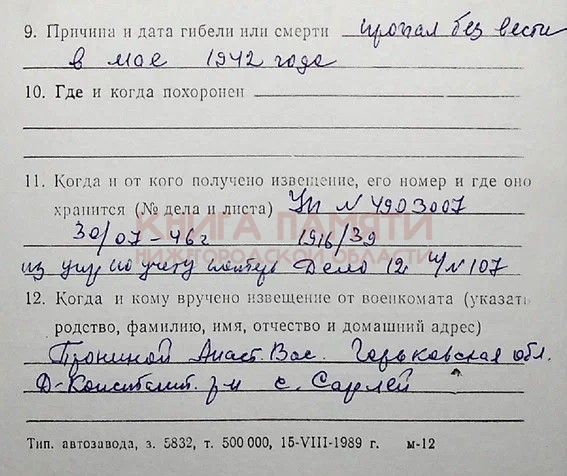 9. Причина и дата гибели или смерти пропал без вести
в мае 1942 года
10. Где и когда похоронен
11. Когда и от кого получено извещение, его номер и где оно
хранится (№ дела и листа) УП N 4903007
КНИГА ПАМЯТИ
30/07-46г 1916/39
НИЖЕГОРОДСКОЙ ОБЛАСТИ
из упр по учету потерь Дело 12 N 107
12. Когда и кому вручено извещение от военкомата (указать
родство, фамилию, имя, отчество и домашний адрес)
Прониной Анаст. Вас. Горьковская обл.
Д-Констант. р-н с. Сарлей
Тип. автозавода, з. 5832, т. 500 000, 15-VIII-1989 г. м-12